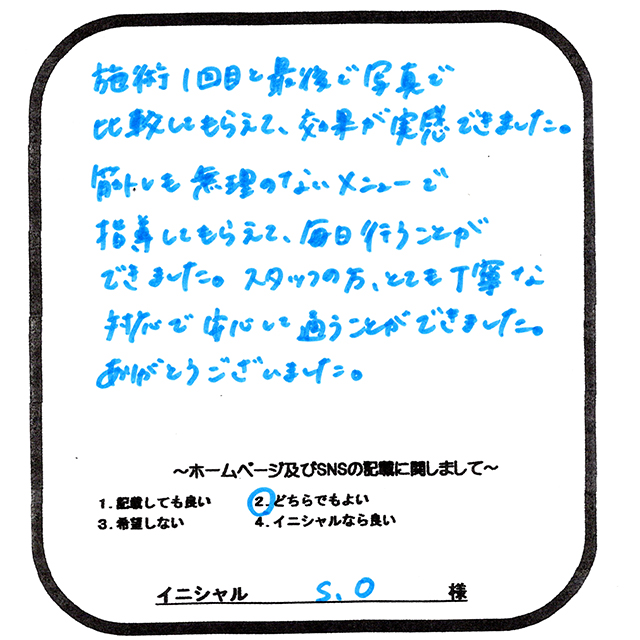 施術1回目と最後で写真で
比較してもらえて、効果が実感できました。
筋トレも無理のないメニューで
指導してもらえて、毎日行うことが
できました。スタッフの方、とても丁寧な
対応で安心して通うことができました。
ありがとうございました。
～ホームページ及びSNSの記載に関しまして～
1.記載しても良い 2.どちらでもよい
3.希望しない 4.イニシャルなら良い
イニシャル S.O 様